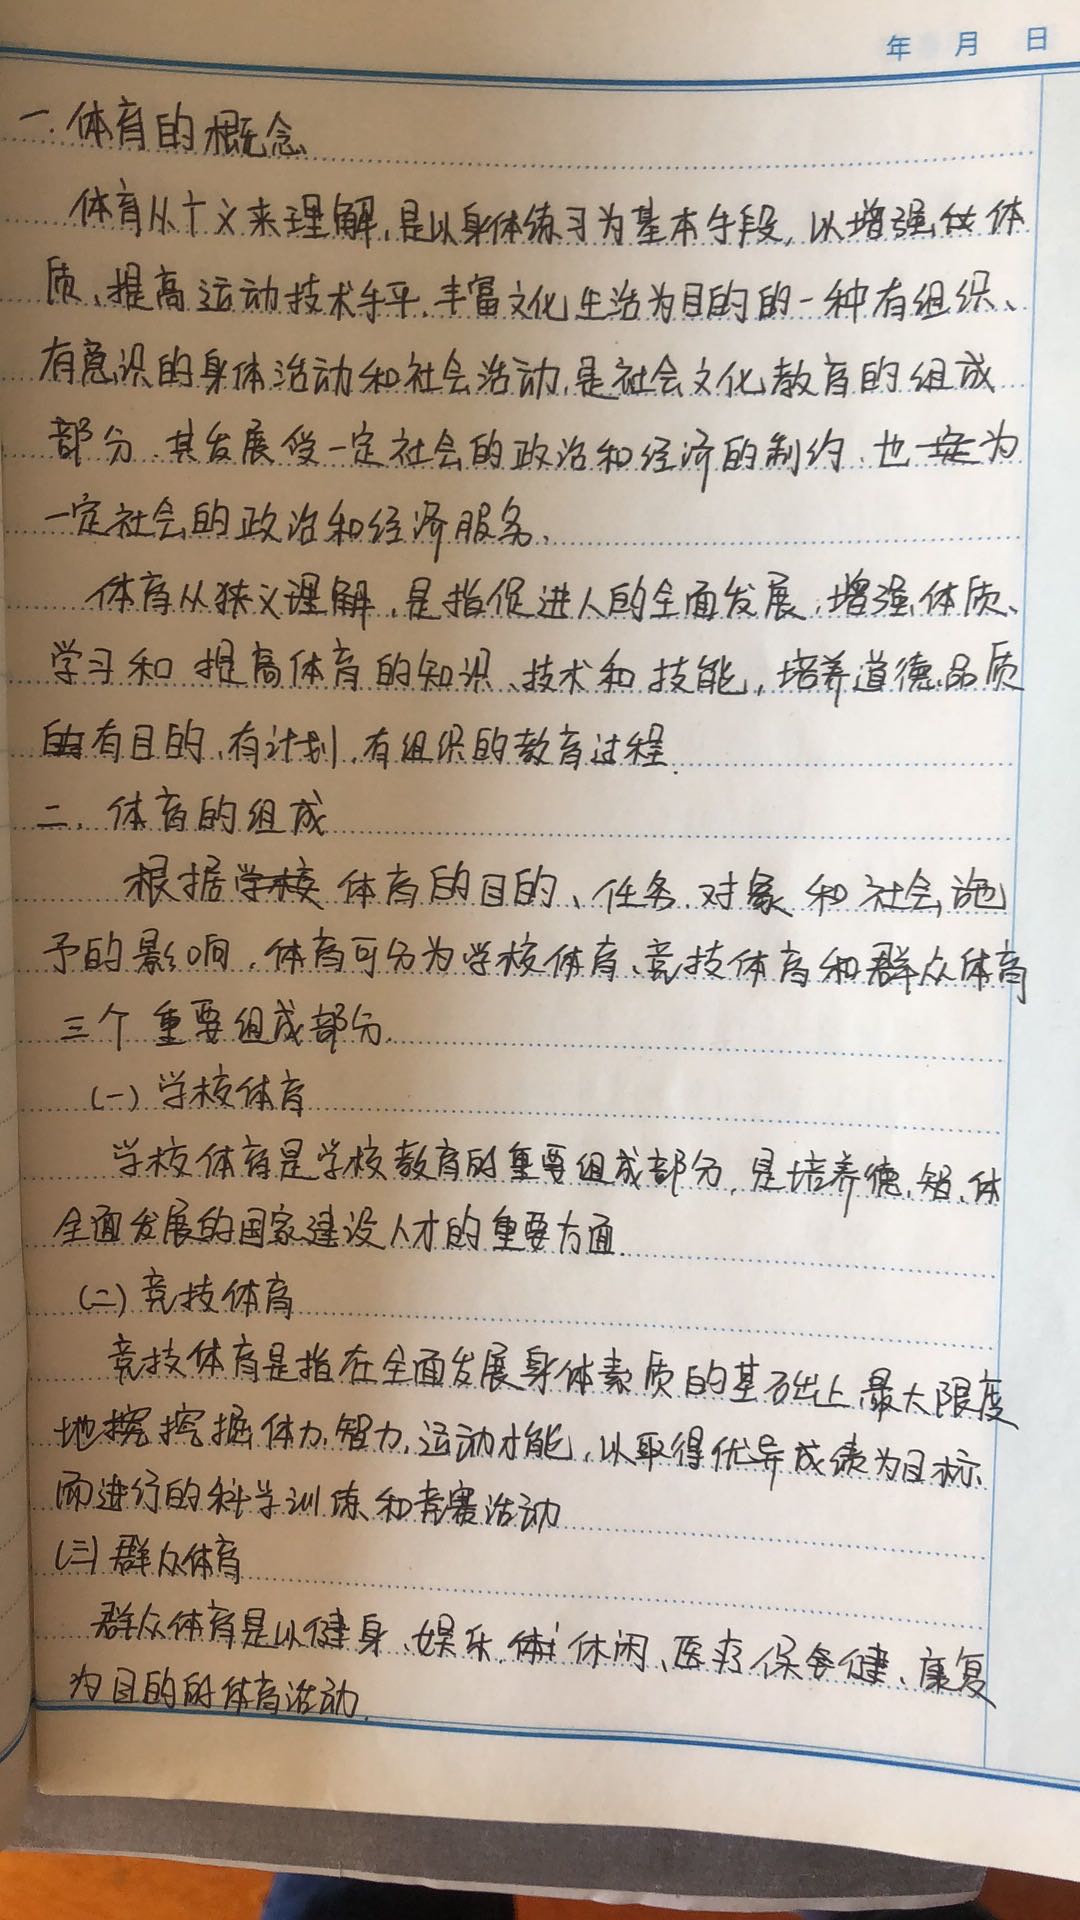 年 月 日
一.体育的概念
体育从广义来理解,是以身体练习为基本手段,以增强体
质、提高运动技术水平.丰富文化生活为目的的一种有组织、
有意识的身体活动和社会活动,是社会文化教育的组成
部分.其发展受一定社会的政治和经济的制约.也定为
一定社会的政治和经济服务.
体育从狭义理解,是指促进人的全面发展,增强体质、
学习和提高体育的知识、技术和技能,培养道德品质
的有目的、有计划.有组织的教育过程.
二.体育的组成
根据学校体育的目的、任务.对象和社会施
予的影响,体育可分为学校体育、竞技体育和群众体育
三个重要组成部分.
(一)学校体育
学校体育是学校教育的重要组成部分,是培养德.智.体
全面发展的国家建设人才的重要方面.
(二)竞技体育
竞技体育是指在全面发展身体素质的基础上,最大限度
地挖挖掘体力.智力.运动才能,以取得优异成绩为目标
而进行的科学训练和竞赛活动
(三)群众体育
群众体育是以健身、娱乐.休闲、医疗保健、康复
为目的的体育活动.